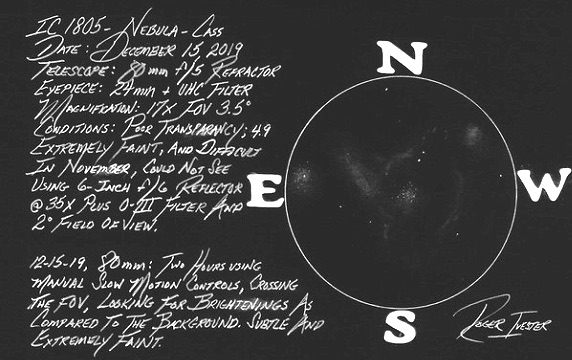 IC 1805 - NEBULA - CASS
DATE: DECEMBER 15 2019
TELESCOPE: 80mm f/5 REFRACTOR
EYEPIECE: 24mm + UHC FILTER
MAGNIFICATION: 17X FOV 3.5°
CONDITIONS: POOR TRANSPARANCY; 4.9
EXTREMELY FAINT, AND DIFFICULT
IN NOVEMBER, COULD NOT SEE
USING 6-INCH f/6 REFLECTOR
@ 35X PLUS O-III FILTER AND
2° FIELD OF VIEW.
12-15-19, 80mm: TWO HOURS USING
MANUAL SLOW MOTION CONTROLS, CROSSING
THE FOV, LOOKING FOR BRIGHTENINGS AS
COMPARED TO THE BACKGROUND. SUBTLE AND
EXTREMELY FAINT.
N
E
W
S
ROGER IVESTER